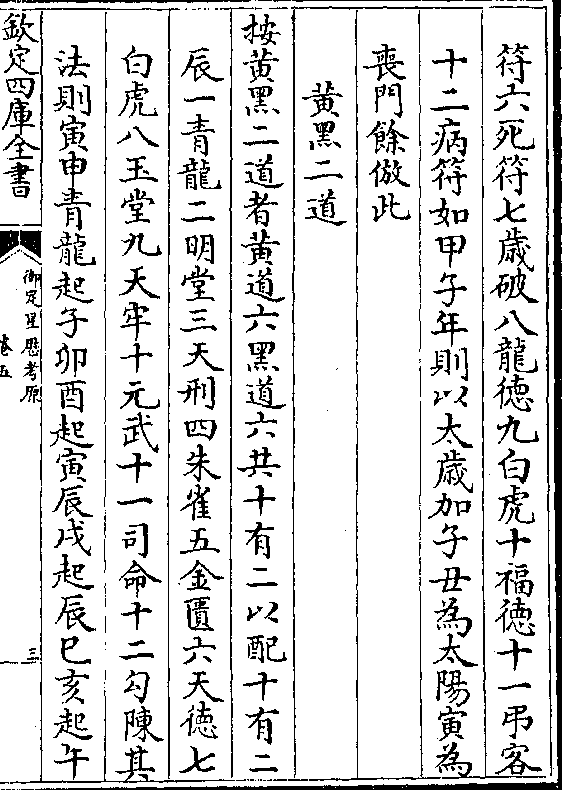 符六死符七歳破八龍徳九白虎十福徳十一弔客
十二病符如甲子年則以太歳加子丑為太陽寅為
喪門餘倣此
黃黑二道
按黃黑二道者黃道六黑道六共十有二以配十有二
辰一青龍二明堂三天刑四朱雀五金匱六天徳七
白虎八玉堂九天牢十元武十一司命十二勾陳其
法則寅申青龍起子卯酉起寅辰戌起辰巳亥起午
欽定四庫全書
御定星厯考原
卷五
三